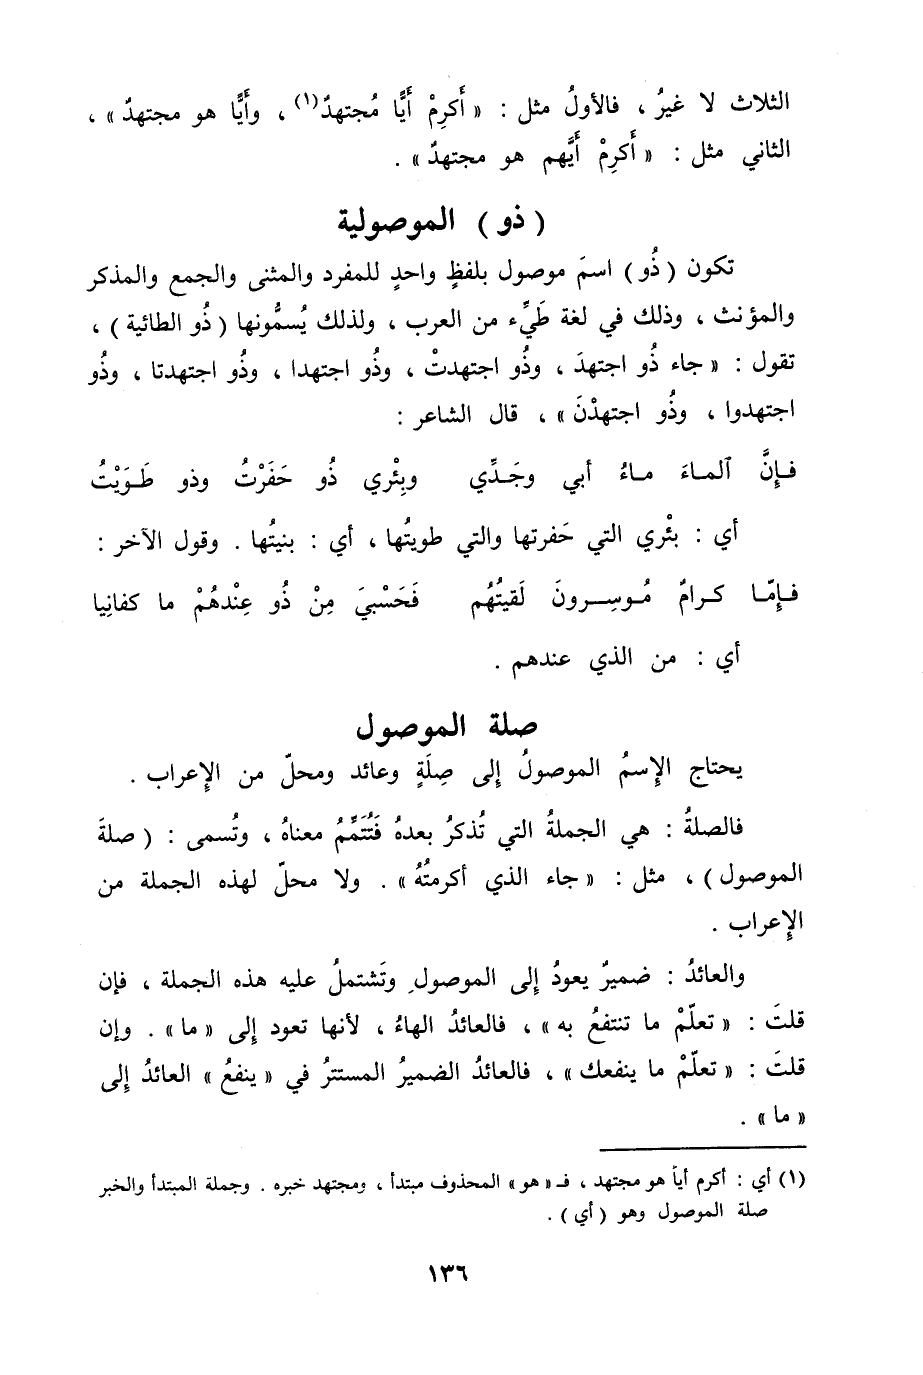 الثلاث لا غيرُ ، فالأولُ مثل : « أَكرِمْ أَيًّا مُجتهدٌ(١) ، وأَيًّا هو مجتهدٌ » ،
الثاني مثل : « أَكرِمْ أَيَّهم هو مجتهدٌ » .
( ذو ) الموصولية
تكون ( ذُو ) اسمَ موصول بلفظٍ واحدٍ للمفرد والمثنى والجمع والمذكر
والمؤنث ، وذلك في لغة طَيِّء من العرب ، ولذلك يُسمُّونها ( ذُو الطائية ) ،
تقول : « جاء ذُو اجتهدَ ، وذُو اجتهدتْ ، وذُو اجتهدا ، وذُو اجتهدتا ، وذُو
اجتهدوا ، وذُو اجتهدْنَ » ، قال الشاعر :
فـإِنَّ ٱلمـاءَ مـاءُ أبي وجَـدِّي وبِئْري ذُو حَفَرْتُ وذو طَـوَيْتُ
أي : بئْري التي حَفرتها والتي طويتُها ، أي : بنيتُها . وقول الآخر :
فـإِمّـا كـرامٌ مُـوسِـرونَ لَقيتُهُم فَحَسْبيَ مِنْ ذُو عِنْدهُمْ ما كفانِيا
أي : من الذي عندهم .
صلة الموصول
يحتاج الإِسمُ الموصولُ إِلى صِلَةٍ وعائد ومحلّ من الإِعراب .
فالصلةُ : هي الجملةُ التي تُذكرُ بعدهُ فَتُتَمِّمُ معناهُ ، وتُسمى : ( صلةَ
الموصول ) ، مثل : « جاء الذي أكرمتُهُ » . ولا محلّ لهذه الجملة من
الإِعراب .
والعائدُ : ضميرٌ يعودُ إِلى الموصولِ وتَشتملُ عليه هذه الجملة ، فإن
قلتَ : « تعلّمْ ما تنتفعُ به » ، فالعائدُ الهاءُ ، لأنها تعود إِلى « ما » . وإن
قلتَ : « تعلّمْ ما ينفعك » ، فالعائدُ الضميرُ المستترُ في « ينفعُ » العائدُ إِلى
« ما » .
(١) أي : أكرم أياً هو مجتهد ، فـ « هو » المحذوف مبتدأ ، ومجتهد خبره . وجملة المبتدأ والخبر
صلة الموصول وهو ( أي ) .
١٣٦